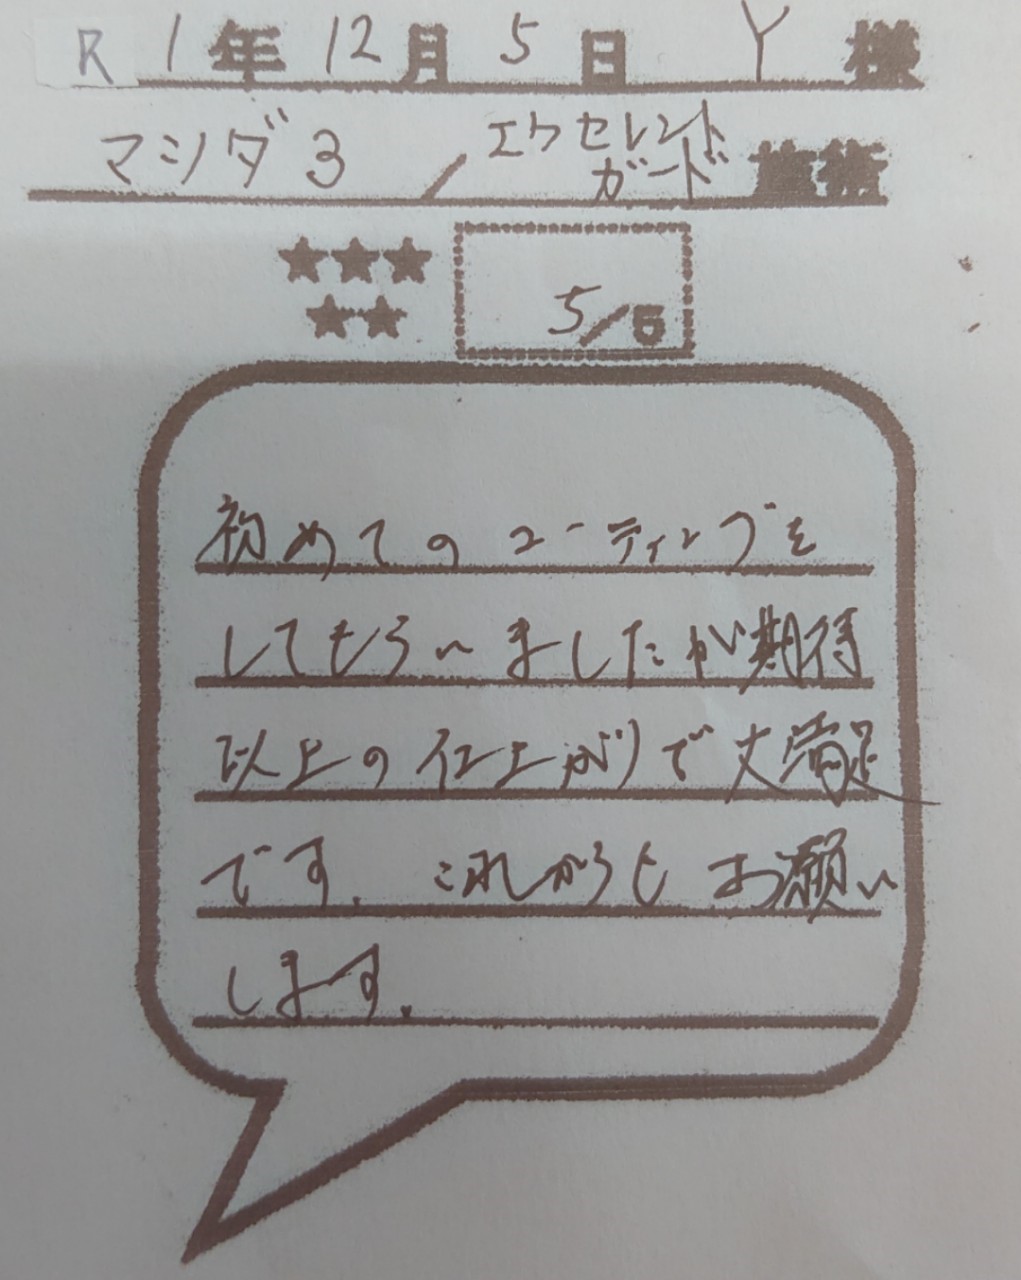 R1年12月5日 Y様
マツダ3 / エクセレント
ガード 施術
★★★
★★
5/5
初めてのコーティングを
してもらいましたが期待
以上の仕上がりで大満足
です. これからもお願い
します.